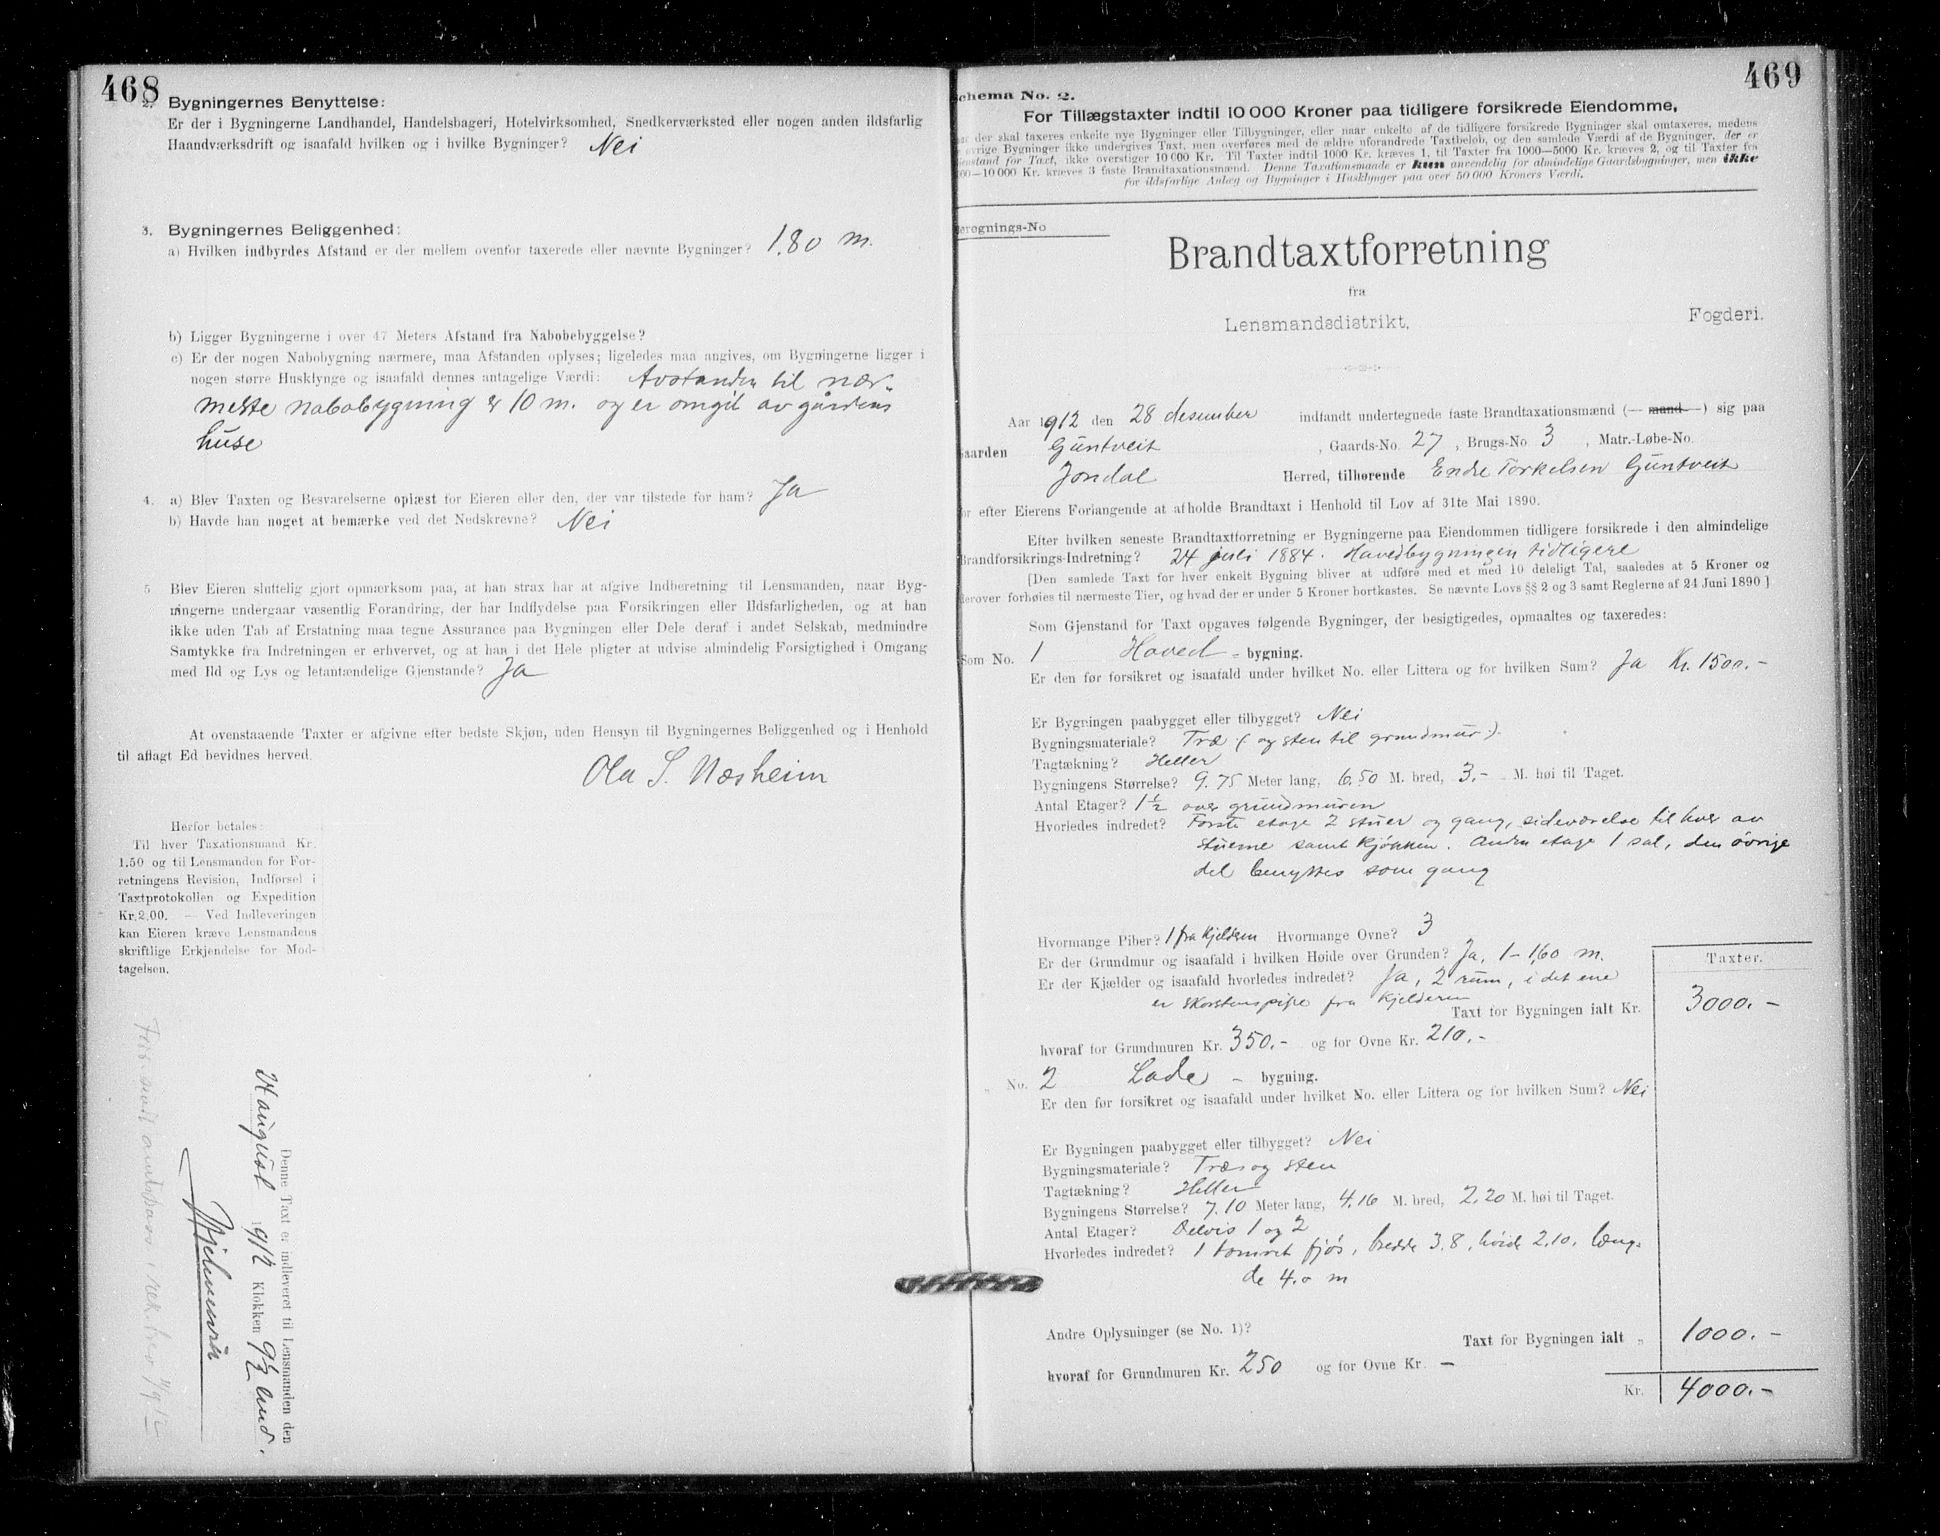 468
2. Bygningernes Benyttelse:
Er der i Bygningerne Landhandel, Handelsbageri, Hotelvirksomhed, Snedkerværksted eller nogen anden ildsfarlig
Haandværksdrift og isaafald hvilken og i hvilke Bygninger? Nei
3. Bygningernes Beliggenhed:
a) Hvilken indbyrdes Afstand er der mellem ovenfor taxerede eller nævnte Bygninger? 1,80 m.
b) Ligger Bygningerne i over 47 Meters Afstand fra Nabobebyggelse?
c) Er der nogen Nabobygning nærmere, maa Afstanden oplyses; ligeledes maa angives, om Bygningerne ligger i
nogen større Husklynge og isaafald dennes antagelige Værdi: Avstanden til nær-
meste nabobygning er 10 m. og er omgit av gårdens
huse
4. a) Blev Taxten og Besvarelserne oplæst for Eieren eller den, der var tilstede for ham? Ja
b) Havde han noget at bemærke ved det Nedskrevne? Nei
5 Blev Eieren sluttelig gjort opmærksom paa, at han strax har at afgive Indberetning til Lensmanden, naar Byg-
ningerne undergaar væsentlig Forandring, der har Indflydelse paa Forsikringen eller Ildsfarligheden, og at han
ikke uden Tab af Erstatning maa tegne Assurance paa Bygningen eller Dele deraf i andet Selskab, medmindre
Samtykke fra Indretningen er erhvervet, og at han i det Hele pligter at udvise almindelig Forsigtighed i Omgang
med Ild og Lys og letantændelige Gjenstande? Ja
At ovenstaaende Taxter er afgivne efter bedste Skjøn, uden Hensyn til Bygningernes Beliggenhed og i Henhold
til aflagt Ed bevidnes herved.
Ola S. Næsheim
Herfor betales:
Til hver Taxationsmand Kr.
1,50 og til Lensmanden for For-
retningens Revision, Indførsel i
Taxtprotokollen og Expedition
Kr. 2.00. — Ved Indleveringen
kan Eieren kræve Lensmandens
skriftlige Erkjendelse for Mod-
tagelsen.
Denne Taxt er indleveret til Lensmanden den
august 1912 Klokken 9½
469
chema No. 2.
For Tillægstaxter indtil 10 000 Kroner paa tidligere forsikrede Eiendomme,
der skal taxeres enkelte nye Bygninger eller Tilbygninger, eller naar enkelte af de tidligere forsikrede Bygninger skal omtaxeres, medens
øvrige Bygninger ikke undergives Taxt, men overføres med de ældre uforandrede Taxtbeløb, og den samlede Værdi af de Bygninger, der er
jenstand for Taxt, ikke overstiger 10 000 Kr. Til Taxter indtil 1000 Kr. kræves 1, til Taxter fra 1000—5000 Kr. kræves 2, og til Taxter fra
00—10 000 Kr. kræves 3 faste Brandtaxationsmænd. Denne Taxationsmaade er kun anvendelig for almindelige Gaardsbygninger, men ikke
for ildsfarlige Anlæg og Bygninger i Husklynger paa over 50 000 Kroners Værdi.
erognings-No
Brandtaxtforretning
fra
Lensmandsdistrikt, Fogderi.
Aar 1912 den 28 desember indfandt undertegnede faste Brandtaxationsmænd (— mand —) sig paa
aarden Guntveit, Gaards-No. 27, Brugs-No 3, Matr.-Løbe-No.
Jondal Herred, tilhørende Endre Torkelsen Guntveit
or efter Eierens Forlangende at afholde Brandtaxt i Henhold til Lov af 31te Mai 1890.
Efter hvilken seneste Brandtaxtforretning er Bygningerne paa Eiendommen tidligere forsikrede i den almindelige
Brandforsikrings-Indretning? 24 juli 1884. Hovedbygningen tidligere
[Den samlede Taxt for hver enkelt Bygning bliver at udføre med et med 10 deleligt Tal, saaledes at 5 Kroner og
derover forhøies til nærmeste Tier, og hvad der er under 5 Kroner bortkastes. Se nævnte Lovs §§ 2 og 3 samt Reglerne af 24 Juni 1890]
Som Gjenstand for Taxt opgaves følgende Bygninger, der besigtigedes, opmaaltes og taxeredes:
Som No. 1 Hoved - bygning.
Er den før forsikret og isaafald under hvilket No. eller Littera og for hvilken Sum? Ja Kr. 1500.-
Er Bygningen paabygget eller tilbygget? Nei
Bygningsmateriale? Træ (og sten til grundmur).
Tagtækning? Heller
Bygningens Størrelse? 9.75 Meter lang, 6.50 M. bred, 3.- M. høi til Taget.
Antal Etager? 1½ over grundmuren
Hvorledes indredet? Første etage 2 stuer og gang, sideværelse til hver av
stuerne samt kjøkken. Anden etage 1 sal, den øvrige
del benyttes som gang
Hvormange Piber? 1 fra kjelderen Hvormange Ovne? 3
Er der Grundmur og isaafald i hvilken Høide over Grunden? Ja, 1-1,60 m. Taxter.
Er der Kjælder og isaafald hvorledes indredet? Ja, 2 rum, i det ene
er skorstenspipe fra kjelderen
Taxt for Bygningen ialt Kr. 3000.-
hvoraf for Grundmuren Kr. 350.- og for Ovne Kr. 210.-
No. 2 Lade - bygning.
Er den før forsikret og isaafald under hvilket No. eller Littera og for hvilken Sum? Nei
Er Bygningen paabygget eller tilbygget? Nei
Bygningsmateriale? Træ og sten
Tagtækning? Heller
Bygningens Størrelse? 7.10 Meter lang, 4.16 M. bred, 2.20 M. høi til Taget.
Antal Etager? Delvis 1 og 2
Hvorledes indredet? 1 tømret fjøs, bredde 3.8, høide 2.10. læng-
de 4.0 m
Andre Oplysninger (se No. 1)? Taxt for Bygningen ialt „ 1000.-
hvoraf for Grundmuren Kr. 250 og for Ovne Kr. —
Kr. 4000.-